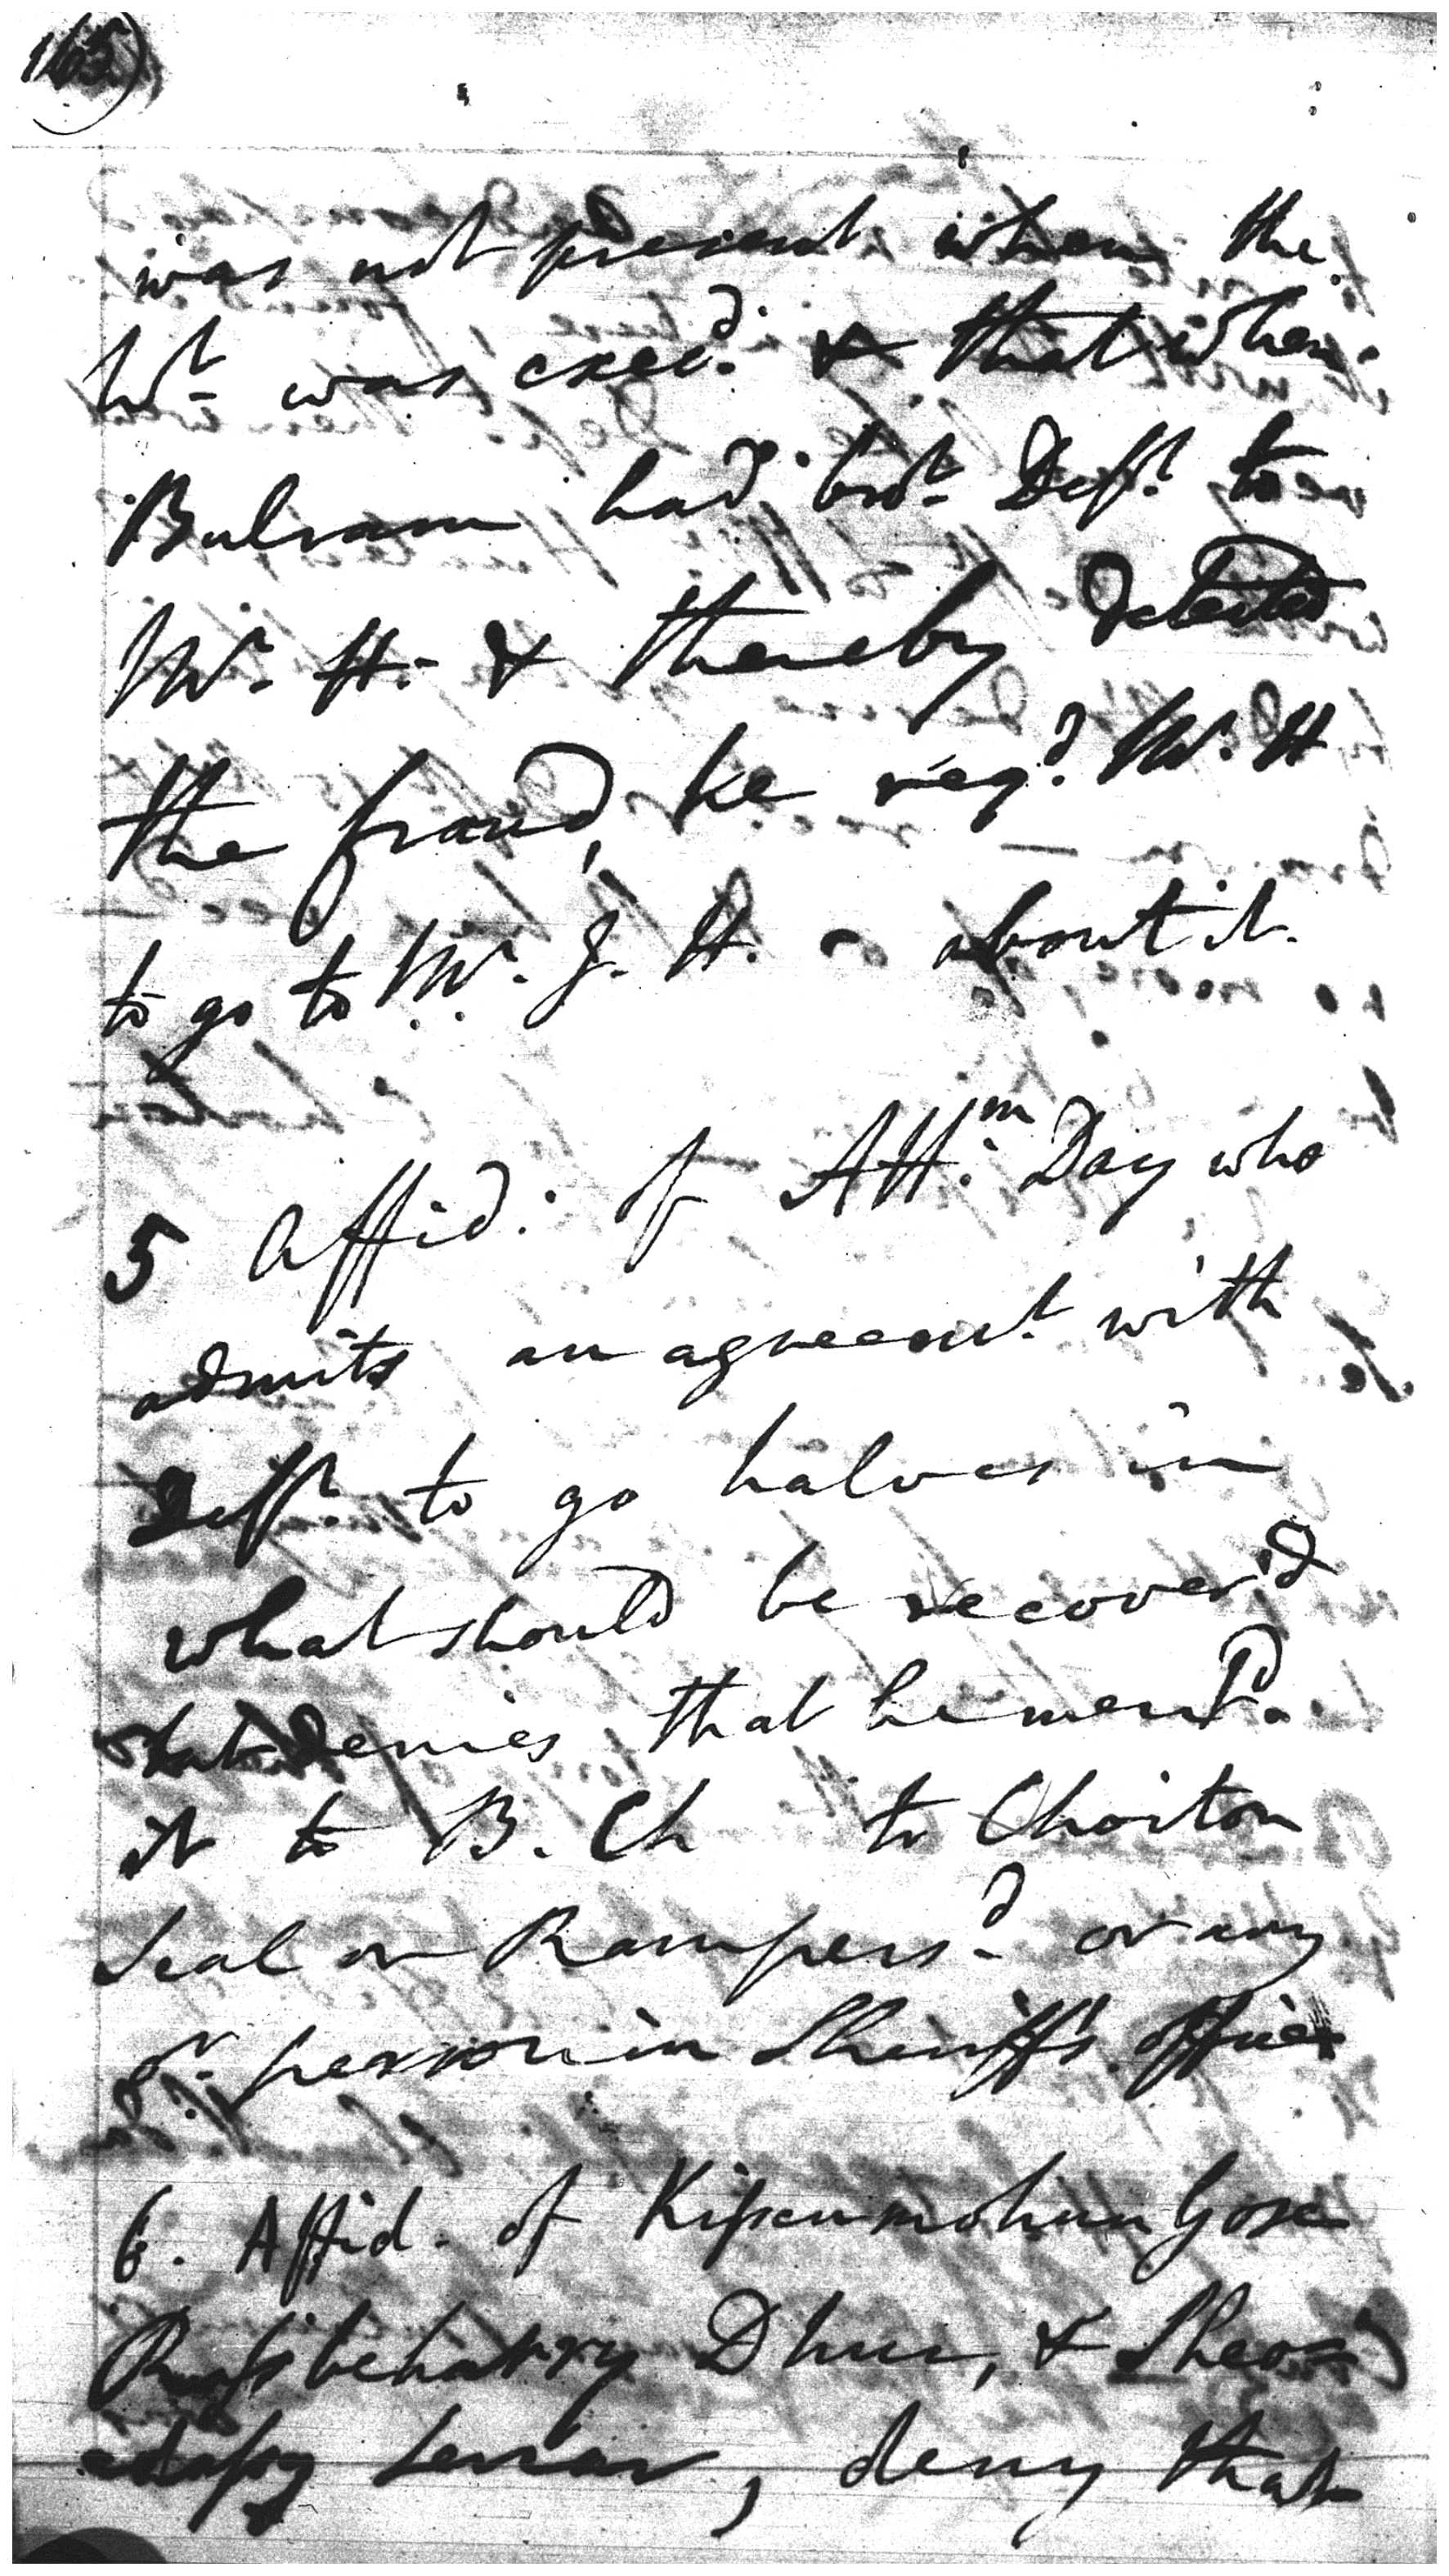 165)
was not present when the
Wt. was exec.d & that when
Bulram had bro.t Deft. to
Mr. H. & thereby detected
the fraud, he reqd. Mr. H
to go to Mr. J. H. about it.
5 Affid: of AHm. Day who
admits an agreemt. with
Deft. to go halves in
what should be recover'd
but denies that he ment.d
it to B. Ch to Choiton
Seal or Rampers.d or any
or. person in Sheriff's office
6. Affid. of Kissenmohun Gose
Rassbeharry Dhur, & Sheo=
 Sercar, deny that